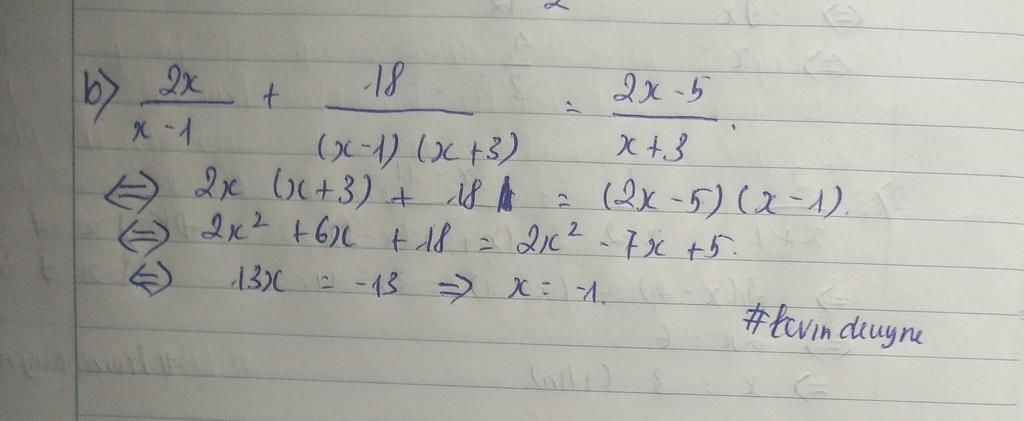 b) 2x/(x-1) + 18/((x-1)(x+3)) = (2x-5)/(x+3).
⇔ 2x (x+3) + 18 = (2x-5)(x-1).
⇔ 2x² + 6x + 18 = 2x² - 7x + 5.
⇔ 13x = -13 ⇒ x = -1.